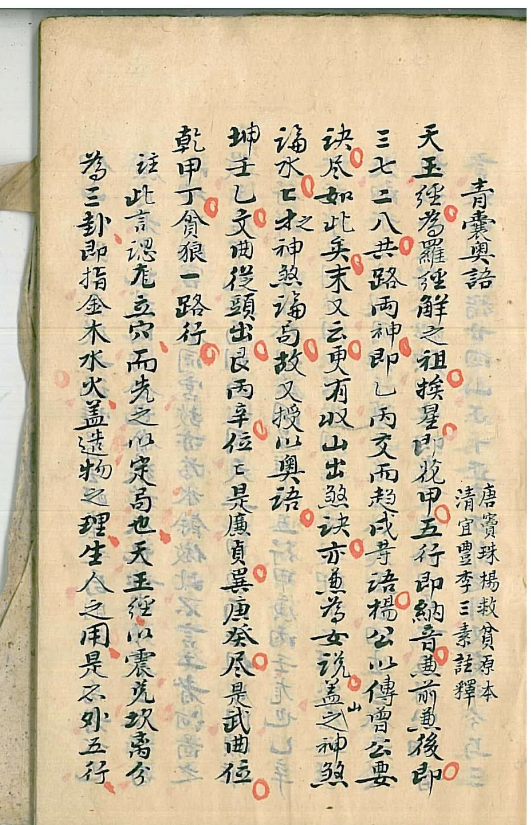 青囊奧語
唐竇珠楊救貧原本
清宜豐李三素註釋
天玉經為羅經解之祖挨星即花甲五行即納音兼前兼後即
三七二八共路兩神即乙丙交而趨戌等語楊公以傳曾公要
訣尽如此矣末又云更有收山出煞訣亦兼為女說盖山之神煞
論水亡才之神煞論局故又授以奧語
坤壬乙文曲從頭出艮丙辛位亡是廉貞巽庚癸尽是武曲位
乾甲丁貪狼一路行
註此言認龙立穴而先之以定局也天玉經以震兌坎离分
為三卦即指金木水火盖造物之理生人之用是不外五行